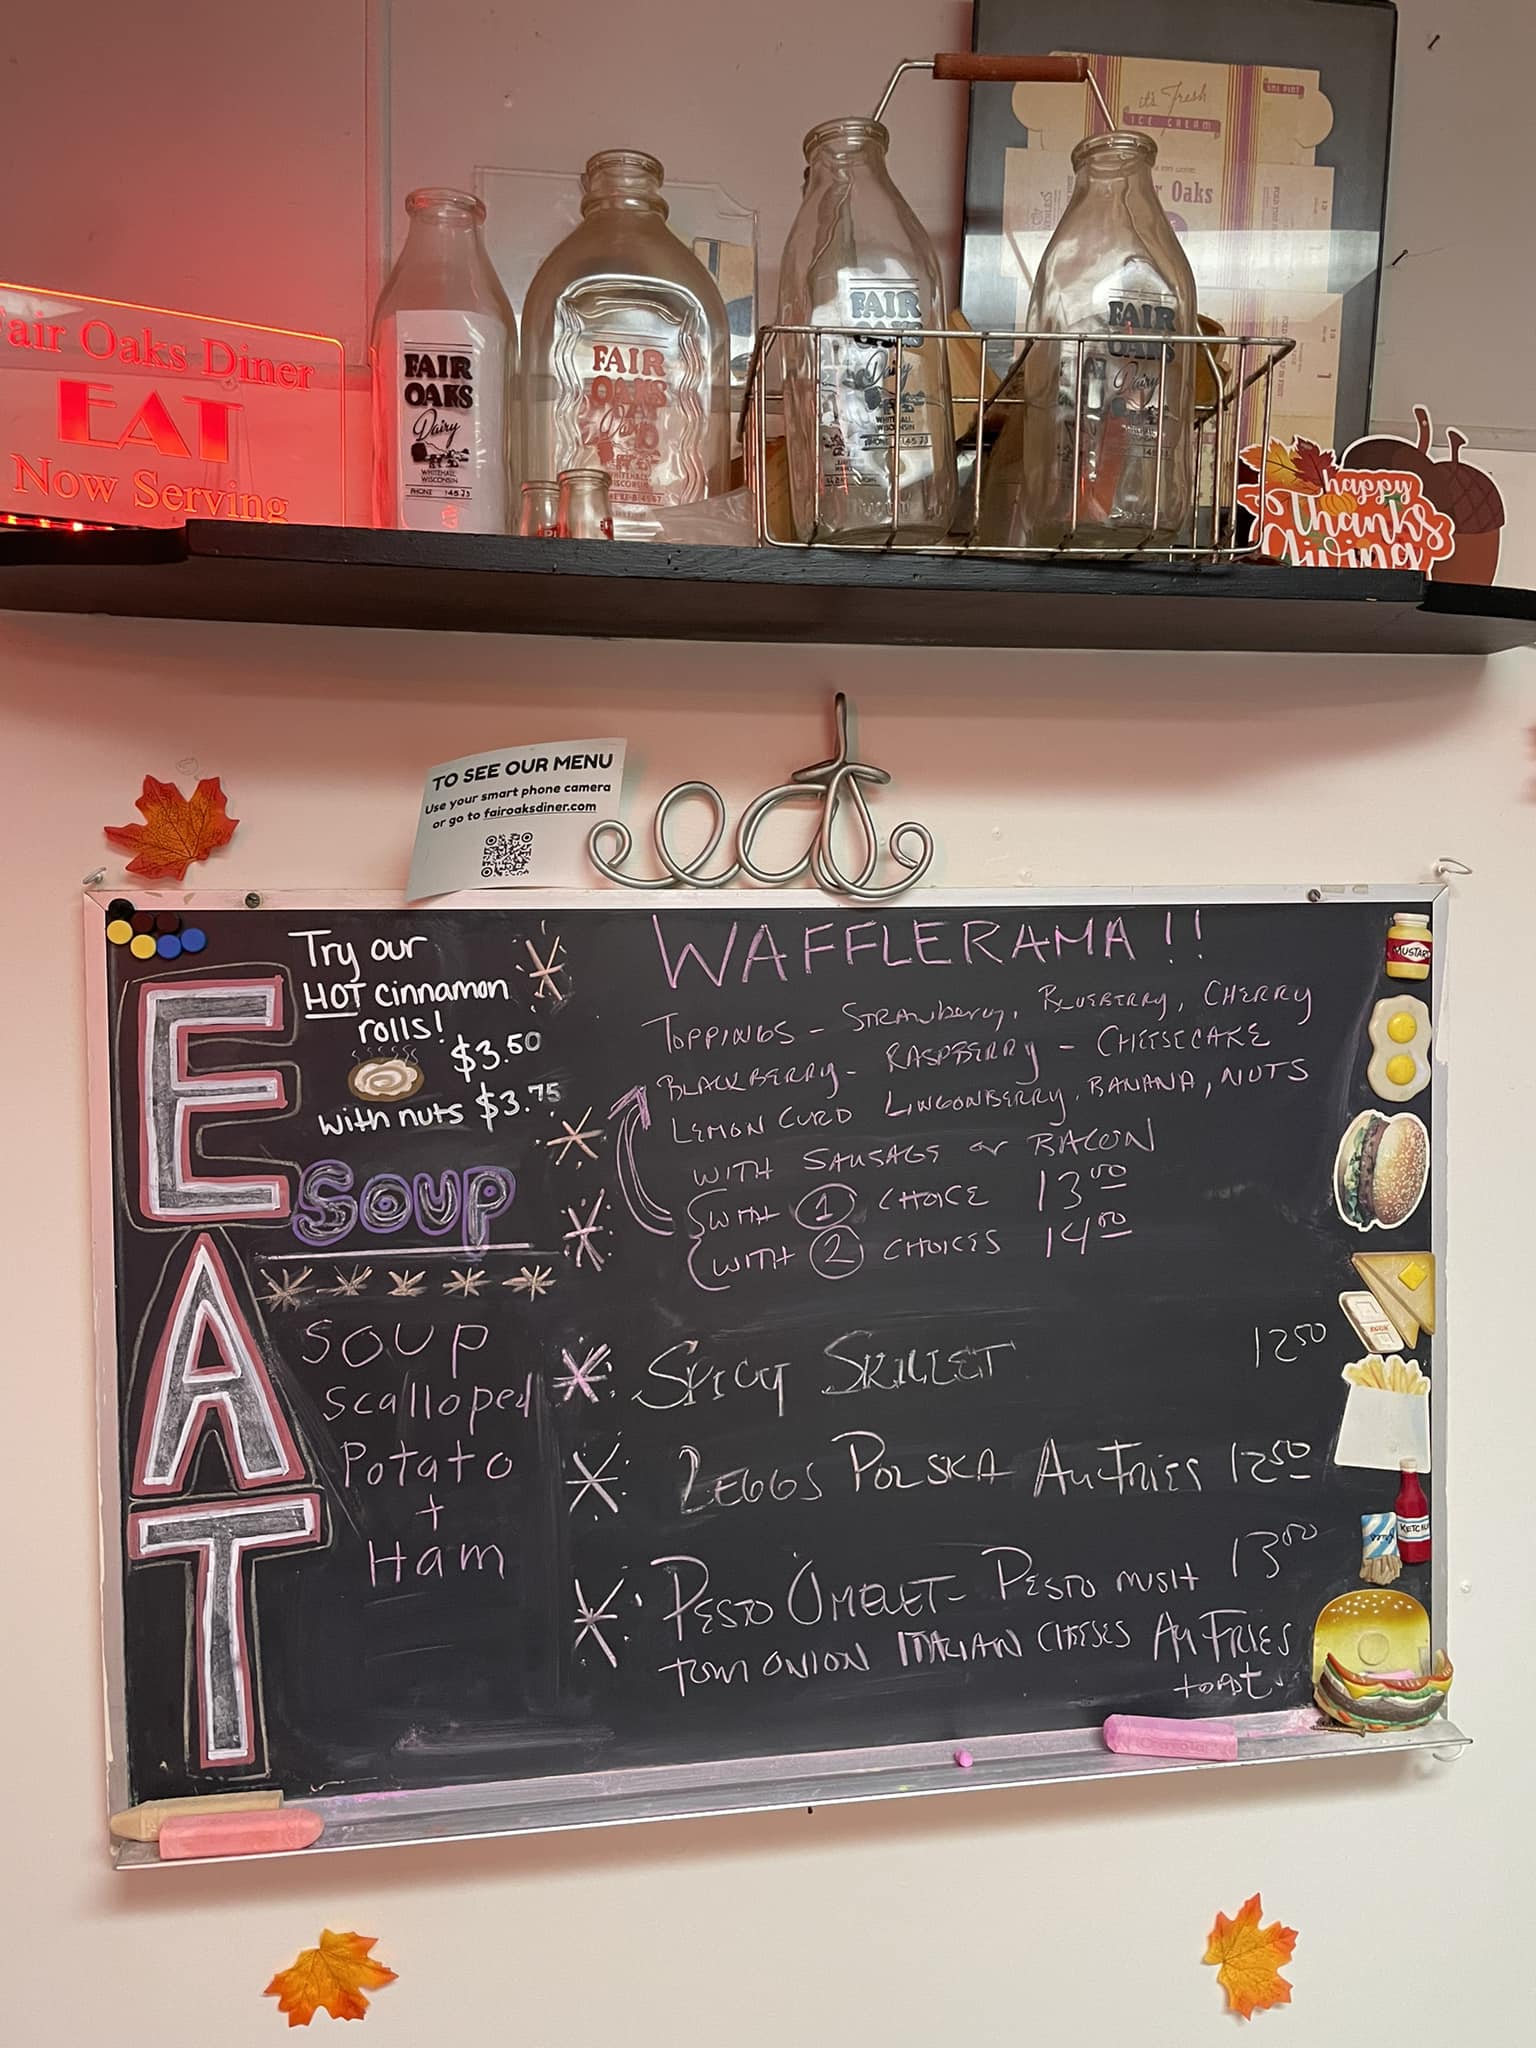 it's Fresh
ICE CREAM
ONE PINT
Oaks
Fair Oaks Diner
EAT
Now Serving
FAIR
OAKS
Dairy
WHITEHALL
WISCONSIN
PHONE 14573
FAIR
OAKS
Dairy
WHITEHALL
WISCONSIN
FAIR
OAKS
Dairy
WHITEHALL
WISCONSIN
PHONE 14573
FAIR
OAKS
Dairy
happy
Thanks
Giving
TO SEE OUR MENU
Use your smart phone camera
or go to fairoaksdiner.com
eat
EAT
Try our
HOT cinnamon
rolls!
$3.50
with nuts $3.75
SOUP
SOUP
Scalloped
Potato
+
Ham
WAFFLERAMA!!
TOPPINGS - STRAWBERRY, BLUEBERRY, CHERRY
BLACKBERRY - RASPBERRY - CHEESECAKE
LEMON CURD LINGONBERRY, BANANA, NUTS
WITH SAUSAGE or BACON
WITH 1 CHOICE 13.00
WITH 2 CHOICES 14.00
SPICY SKILLET 12.50
2 EGGS POLSKA AuFRIES 12.50
PESTO OMELET - PESTO MUSH 13.00
TOM ONION ITALIAN CHEESES Au FRIES
toast
MUSTARD
KETCHUP